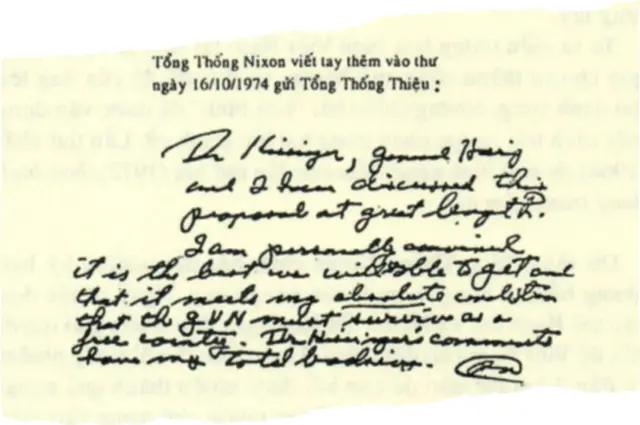 Tổng Thống Nixon viết tay thêm vào thư
ngày 16/10/1974 gửi Tổng Thống Thiệu :
Dr Kissinger, General Haig
and I have discussed this
proposal at great length.
I am personally convinced
it is the best we will be able to get and
that it meets my absolute condition
that the GVN must survive as a
free country. Dr Kissinger's comments
have my total backing.